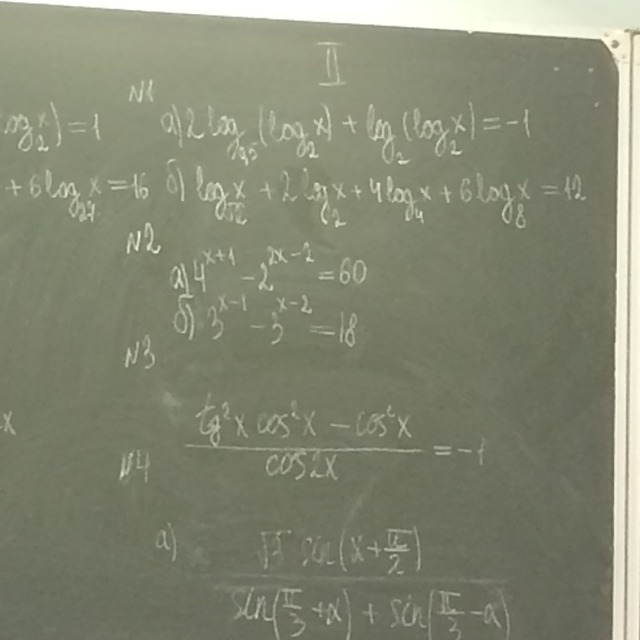 II
№1
og₂x) = 1 а) 2log₀,₅(log₂x) + log₂(log₂x) = -1
+ 6log₂₇x = 16 б) log_√2 x + 2log₂x + 4log₄x + 6log₈x = 12
№2
а) 4^(x+1) - 2^(2x-2) = 60
б) 3^(x-1) - 3^(x-2) = 18
№3
x
(tg²x cos²x - cos²x) / cos2x = -1
№4
а)
sin(x + π/2)
sin(π/3 + α) + sin(π/3 - α)